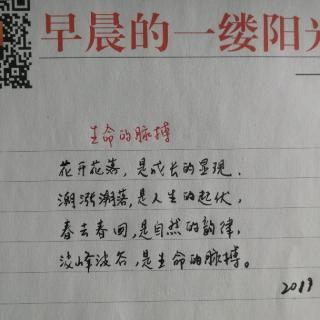 早晨的一缕阳光
生命的脉搏
花开花落，是成长的显现．
潮涨潮落，是人生的起伏，
春去春回，是自然的韵律，
波峰波谷，是生命的脉搏。
2019